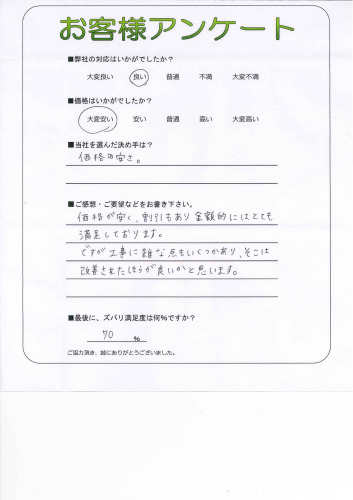 お客様アンケート
■弊社の対応はいかがでしたか？
大変良い 良い 普通 不満 大変不満
■価格はいかがでしたか？
大変安い 安い 普通 高い 大変高い
■当社を選んだ決め手は？
価格の安さ。
■ご感想・ご要望などをお書き下さい。
価格が安く、割引もあり金額的にはとても
満足しております。
ですが工事に雑な点もいくつかあり、そこは
改善されたほうが良いかと思います。
■最後に、ズバリ満足度は何％ですか？
70 ％
ご協力頂き、誠にありがとうございました。